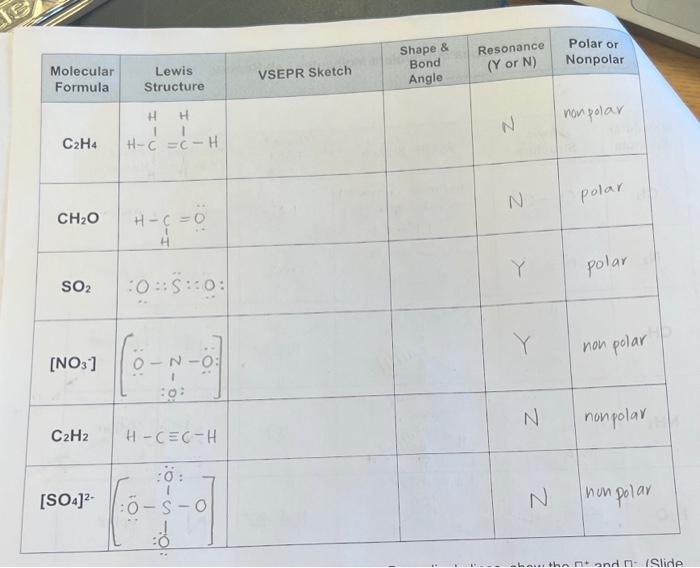 Molecular Formula | Lewis Structure | VSEPR Sketch | Shape & Bond Angle | Resonance (Y or N) | Polar or Nonpolar
H H
C2H4 | H-C=C-H | N | nonpolar
CH2O | H-C=Ö | N | polar
H
SO2 | :O::S::O: | Y | polar
[NO3-] | [Ö-N-Ö:] | Y | non polar
:O:
C2H2 | H-C≡C-H | N | nonpolar
:O:
[SO4]2- | [:Ö-S-O] | N | nonpolar
:O
show the □+ and □- (Slide